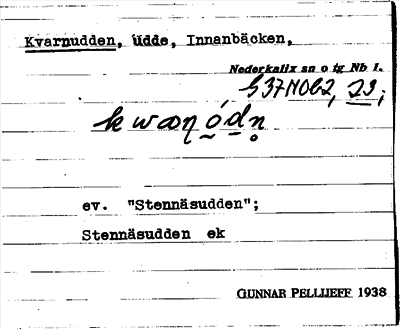 Kvarnudden, udde, Innanbäcken,
Nederkalix sn o tg Nb l.
ev. "Stennäsudden";
Stennäsudden ek
GUNNAR PELLIJEFF 1938